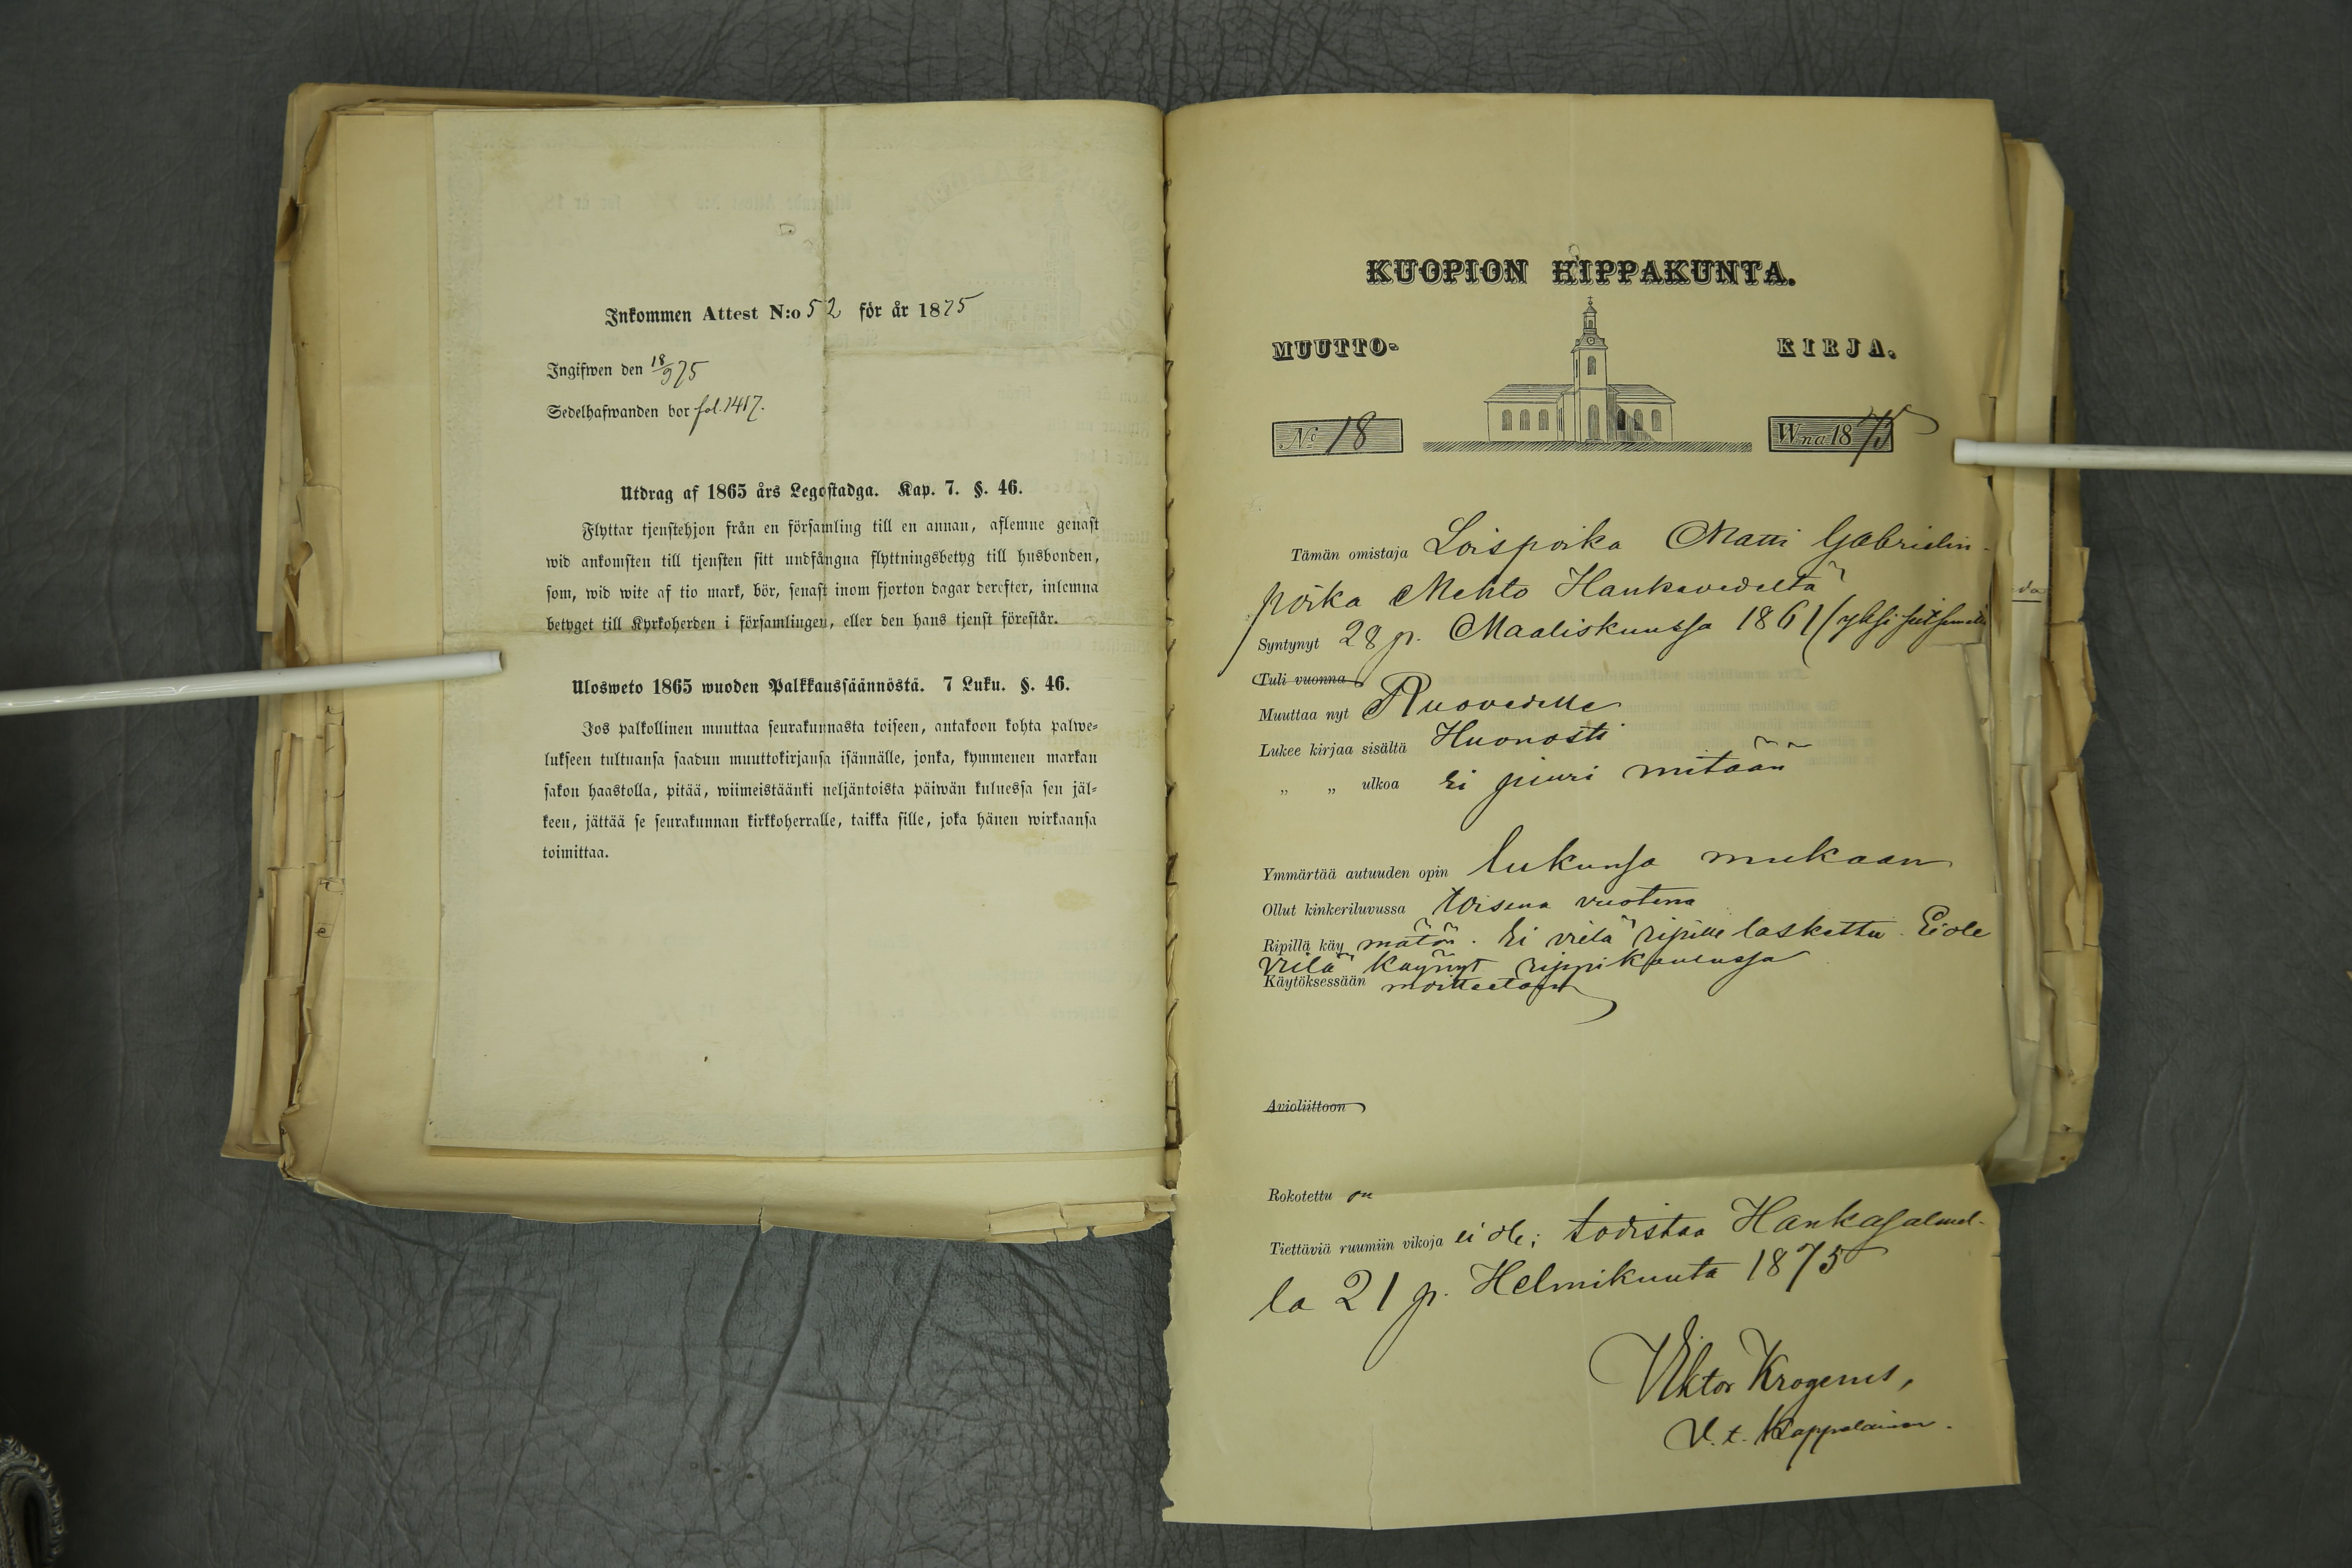 Inkommen Attest N:o 52 för år 1875
Ingifwen den 18/9 75
Sedelhafwanden bor fol. 1417.
Utdrag af 1865 års Legostadga. Kap. 7. §. 46.
Flyttar tjenstehjon från en församling till en annan, aflemne genast
wid ankomsten till tjensten sitt undfångna flyttningsbetyg till husbonden,
som, wid wite af tio mark, bör, senast inom fjorton dagar derefter, inlemna
betyget till Kyrkoherden i församlingen, eller den hans tjenst förestår.
Ulosweto 1865 wuoden Palkkaussäännöstä. 7 Luku. §. 46.
Jos palkollinen muuttaa seurakunnasta toiseen, antakoon kohta palwe=
lukseen tultuansa saadun muuttokirjansa isännälle, jonka, kymmenen markan
sakon haastolla, pitää, wiimeistäänki neljäntoista päiwän kuluessa sen jäl=
keen, jättää se seurakunnan kirkkoherralle, taikka sille, joka hänen wirkaansa
toimittaa.
KUOPION HIPPAKUNTA.
MUUTTO- KIRJA.
No 18 Wna 1875
Tämän omistaja Loispoika Matti Gabrielin-
poika Mehto Hankavedeltä
Syntynyt 28 p. Maaliskuussa 1861 (yksi
Tuli vuonna
Muuttaa nyt Ruovedelle
Lukee kirjaa sisältä Huonosti
„ „ ulkoa Ei juuri mitään
Ymmärtää autuuden opin lukunsa mukaan
Ollut kinkeriluvussa toisena vuotena
Ripillä käy mätön. Ei vielä ripille laskettu. Ei ole
vielä käynyt rippikoulussa
Käytöksessään moitteetoin
Avioliittoon
Rokotettu on
Tiettäviä ruumiin vikoja ei ole; todistaa Hankasalmel-
la 21 p. Helmikuuta 1875
Viktor Krogerus,
V. t. Kappalainen.